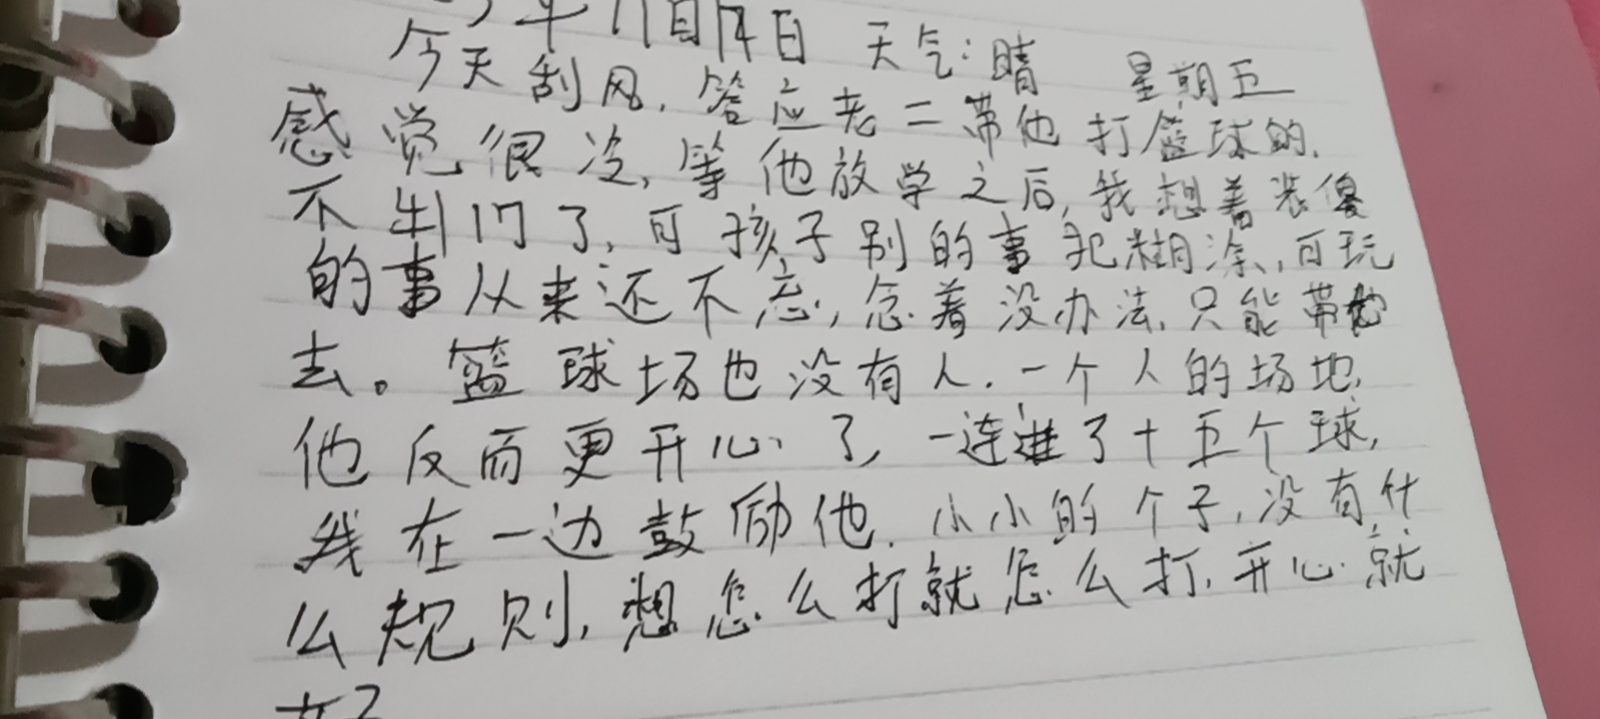 年11月14日 天气:晴 星期五
今天刮风,答应老二带他打篮球的,
感觉很冷,等他放学之后,我想着装傻
不出门了,可孩子别的事犯糊涂,可玩
的事从来还不忘,念着没办法,只能带他
去。篮球场也没有人,一个人的场地,
他反而更开心了,一连进了十五个球,
我在一边鼓励他,小小的个子,没有什
么规则,想怎么打就怎么打,开心就
好